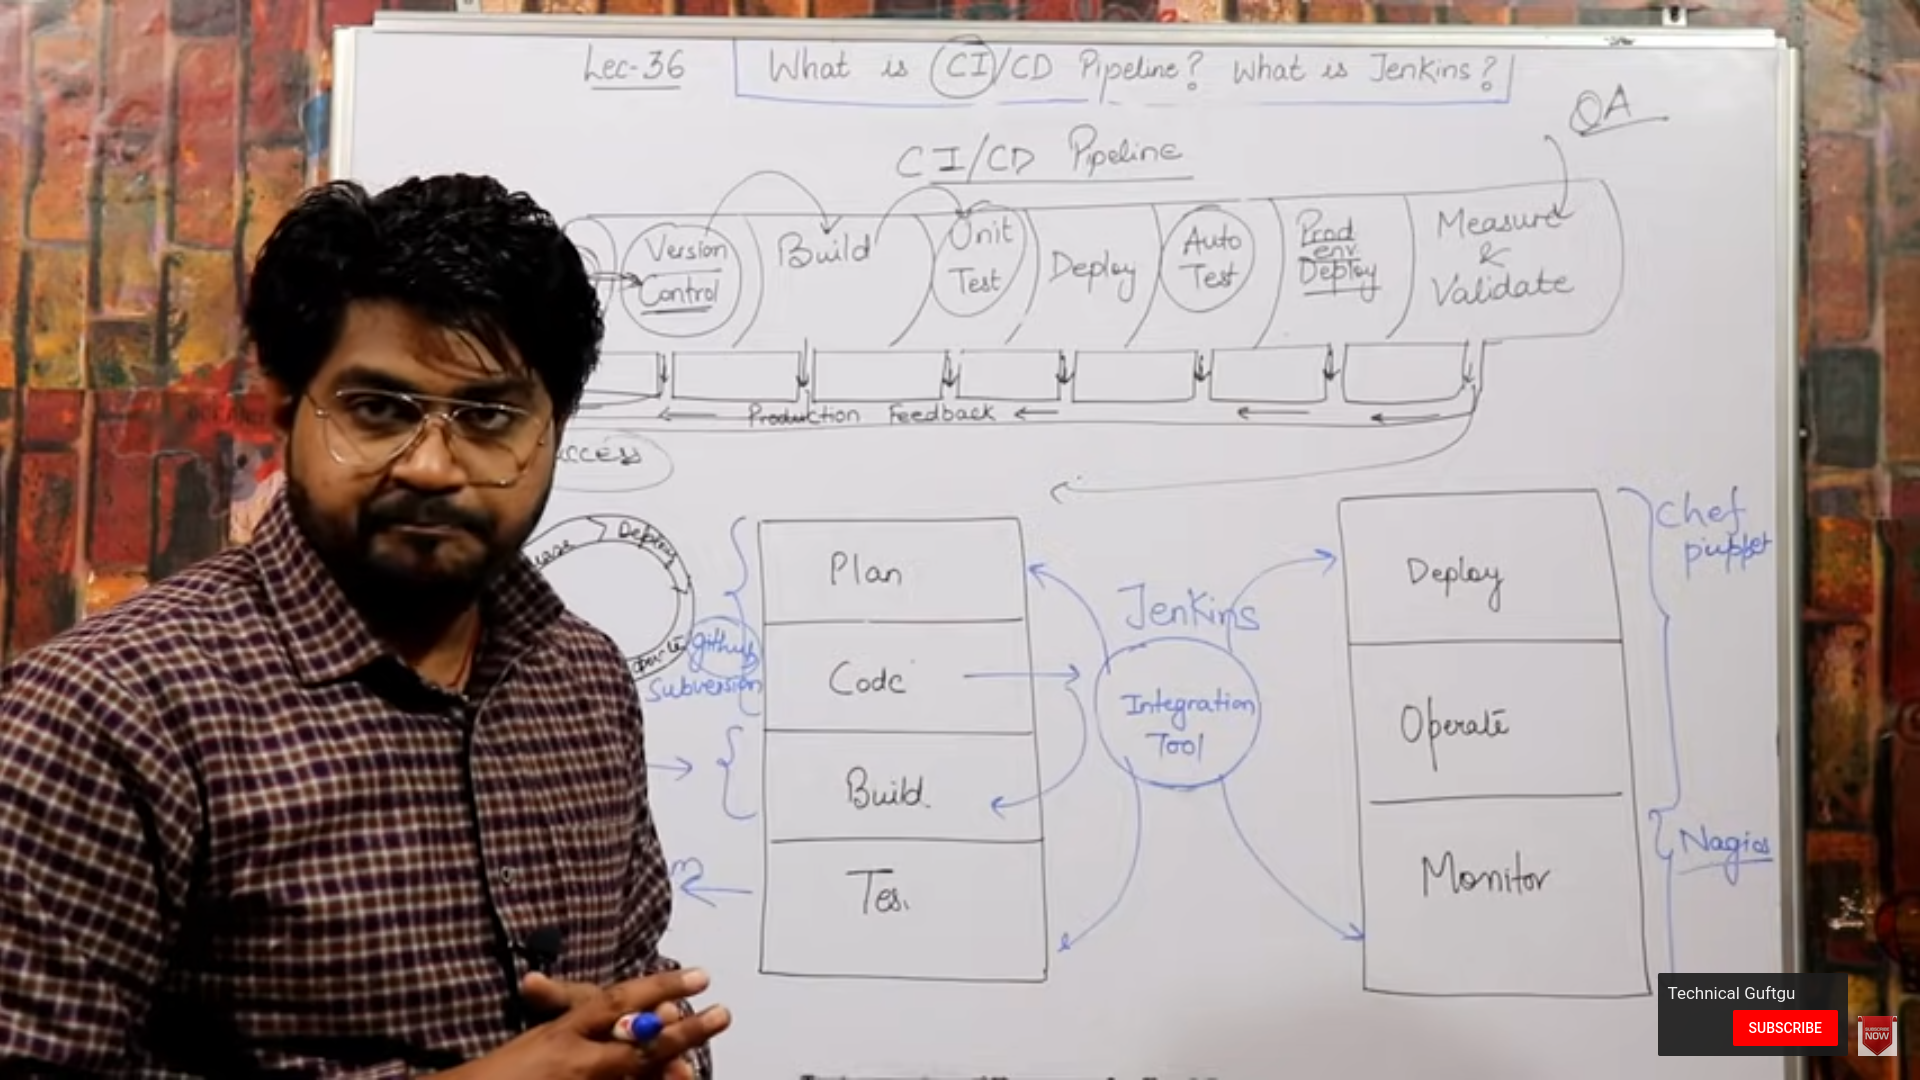 Lec-36
What is CI/CD Pipeline? What is Jenkins?
QA
CI/CD Pipeline
Version
Control
Build
Unit
Test
Deploy
Auto
Test
Prod
env
Deploy
Measure
&
Validate
Production Feedback
Deploy
github
Subversion
Plan
Code
Build
Tes.
Jenkins
Integration
Tool
Deploy
Operate
Monitor
Chef
puppet
Nagios
Technical Guftgu
SUBSCRIBE
SUBSCRIBE
NOW